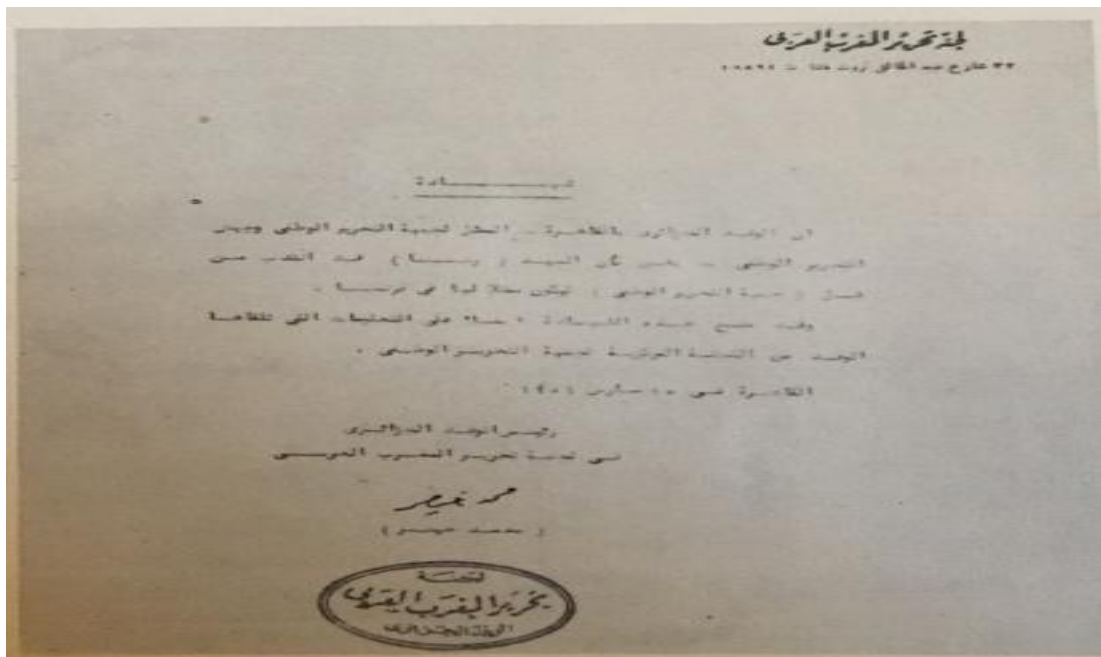 لجنة تحرير المغرب العربى
٣٢ شارع عبد الخالق ثروت
شهـــــادة
ان الوفد الجزائرى بالقاهرة - الممثل لجبهة التحرير الوطنى وجيش
التحرير الوطنى - السيد ( ) قد انتدب من
قبل ( جبهة التحرير الوطنى ) ليكون ممثلا لها فى فرنسا .
وقد منح هذه الشهادة بناء على التعليمات التى تلقاها
الوفد من اللجنة لجبهة التحرير الوطنى .
القاهرة فى مارس
رئيس الوفد الجزائرى
فى لجنة تحرير المغرب العربى
محمد خيضر
( محمد خيضر )
لجنة
تحرير المغرب العربى
الوفد الجزائرى